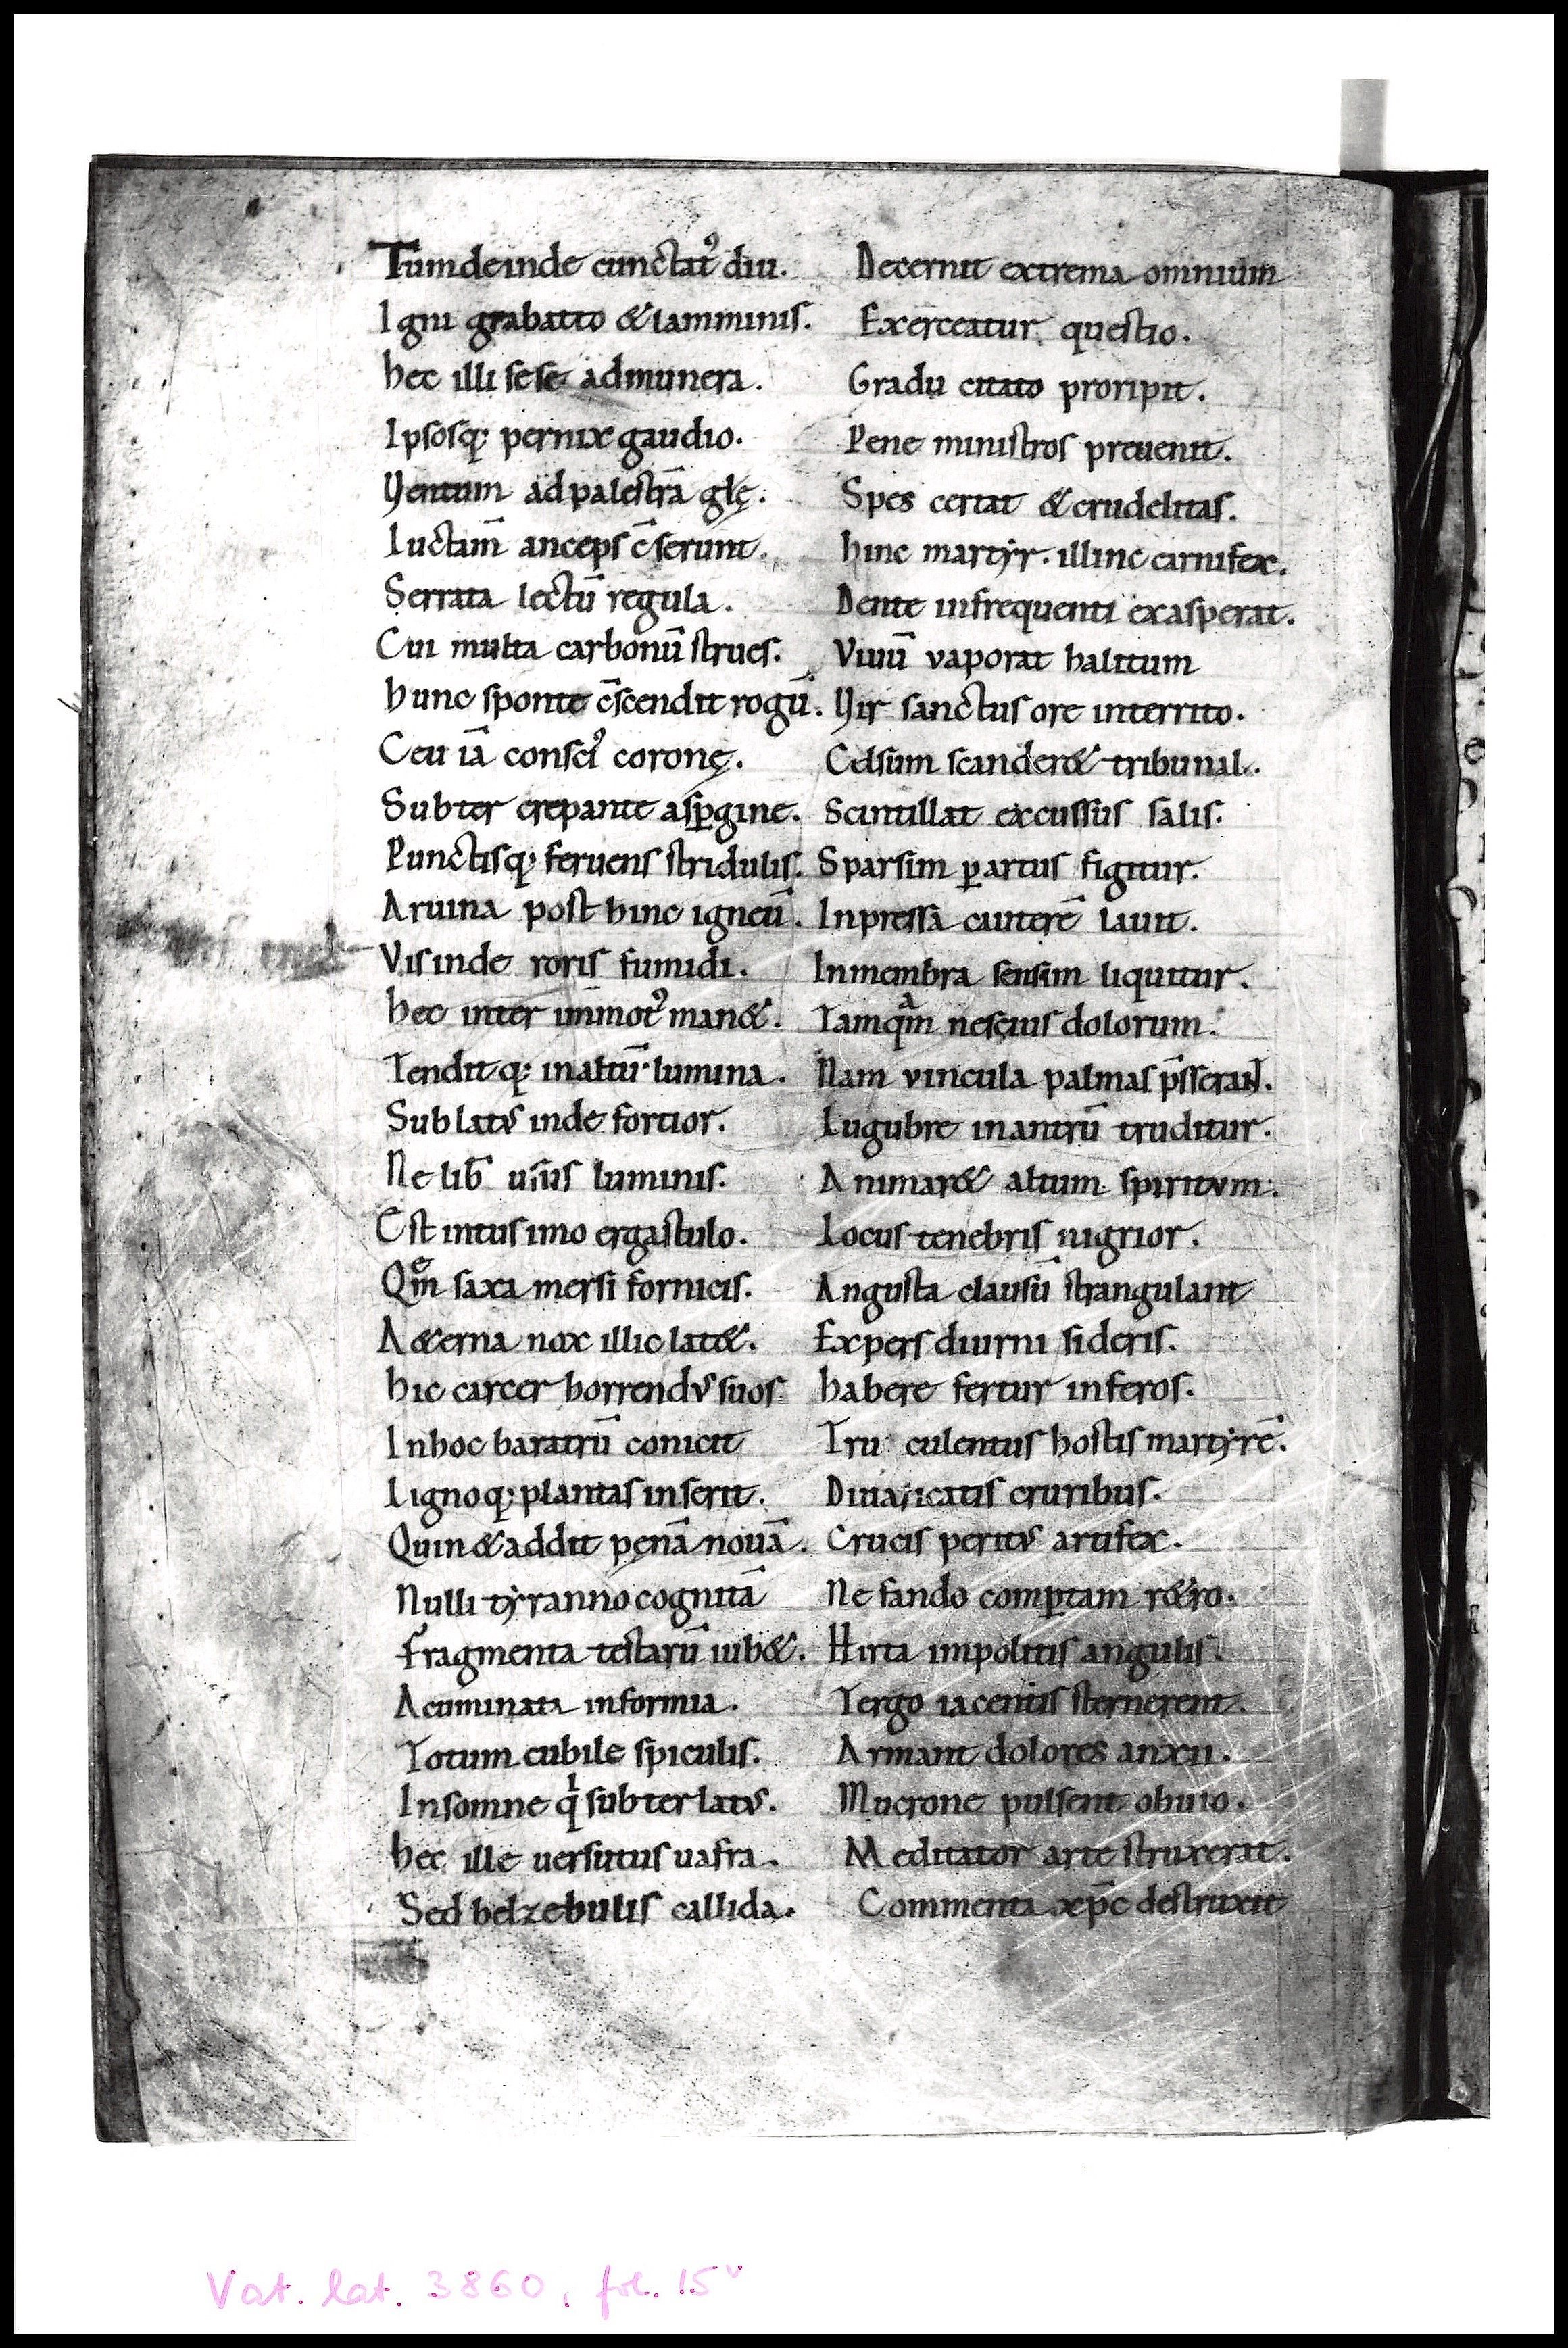 Tum deinde cunctatꝰ diu. Decernit extrema omnium
Igni grabatto & lamminis. Exerceatur questio.
hec illi sese ad munera. Gradu citato proripit.
Ipsosq; pernix gaudio. Pene ministros preuenit.
Ventum ad palestrā glę. Spes certat & crudelitas.
Luctam̄ anceps c̄serunt. hinc martẏr. illinc carnifex.
Serrata lectū regula. Dente infrequenti exasperat.
Cui multa carbonū strues. Viuū vaporat halitum
hunc sponte c̄scendit rogū. Vir sanctus ore interrito.
Ceu iā consciꝰ coronę. Celsum scander& tribunal.
Subter crepante aspꝑgine. Scintillat excussus salis.
Punctisq; feruens stridulis. Sparsim ꝑ artus figitur.
Aruina post hinc igneū. Inpressā cauterē lauit.
Vis inde roris fumidi. In membra sensim liquitur.
hec inter inmotꝰ man&. Tamqᵃm nescius dolorum.
Tendit q; in altū lumina. Nam vincula palmas p̄sserant.
Sublatꝰ inde fortior. Lugubre in antrū truditur.
Ne lib̄ usus luminis. Animar& altum spiritum.
Est intus imo ergastulo. Locus tenebris nigrior.
Qᵉm saxa mersi fornicis. Angusta clausū strangulant
A&erna nox illic lat&. Expers diurni sideris.
hic carcer horrendꝰ suos habere fertur inferos.
In hoc baratrū conicit Truculentus hostis martẏrē.
Lignoq; plantas inserit. Diuaricatis cruribus.
Quin & addit pęnā nouā. Crucis peritꝰ artifex.
Nulli tẏranno cognitā Ne fando comꝑtam r&ro.
Fragmenta testarū iub&. Hirta impolitis angulis.
Acuminata informia. Tergo iacentis sternerent.
Totum cubile spiculis. Armant dolores anxii.
Insomne qⁱ subter latꝰ. Mucrone pulsent obuio.
hec ille uersutus uafra. Meditator arte struxerat.
Sed belzebulis callida. Commenta xp̄c destruxit
Vat. lat. 3860, fol. 15ᵛ